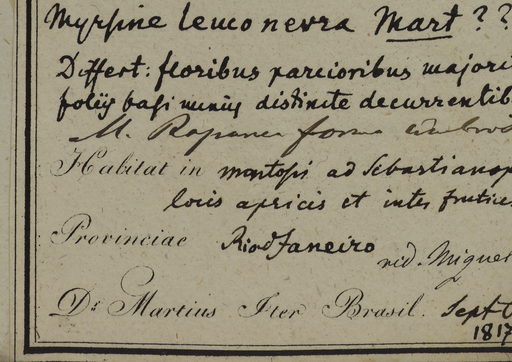 Myrsine leuconevra Mart ??
Differt: floribus parcioribus majori
foliis basi minus distincte decurrentib
M. Rapanea forma
Habitat in montosis ad Sebastianop
locis apricis et inter frutice
Provinciae Rio d Janeiro
vid. Miquel
Dr. Martius Iter Brasil. Sept
1817